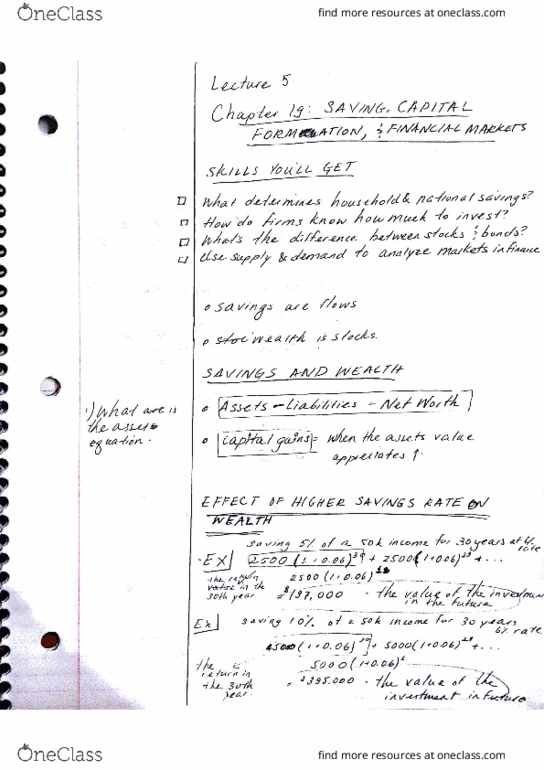 OneClass
find more resources at oneclass.com
Lecture 5
Chapter 19: SAVING, CAPITAL
FORMATION, & FINANCIAL MARKETS
SKILLS YOU'LL GET
What determines household & national savings?
How do firms know how much to invest?
What's the difference between stocks & bonds?
Use supply & demand to analyze markets in finance
savings are flows
wealth is stocks.
SAVINGS AND WEALTH
1) What are is
the assets
equation.
Assets - Liabilities - Net Worth
capital gains = when the assets value
appreciates ↑.
EFFECT OF HIGHER SAVINGS RATE ON
WEALTH
saving 5% of a 50k income for 30 years at 6%
rate
Ex
2500 (1+0.06)³⁰ + 2500 (1+0.06)²⁹ + ...
the return
value in the
30th year
2500 (1+0.06)
= $197,000 · the value of the investment
in the future
Ex
saving 10% of a 50k income for 30 years
6% rate
5000 (1+0.06)³⁰ + 5000 (1+0.06)²⁹ + ...
the
return in
the 30th
year.
5000 (1+0.06)¹
= $395.000 · the value of the
investment in future
OneClass
find more resources at oneclass.com